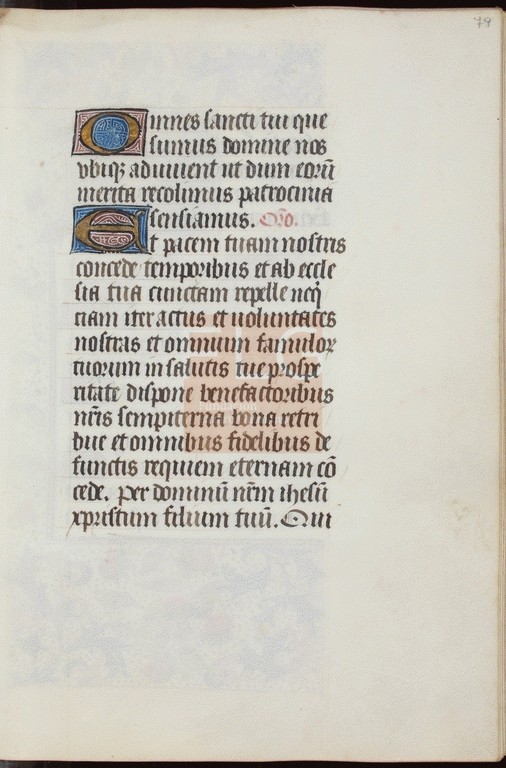 79
Omnes sancti tui que
sumus domine nos
vbiqꝫ adiuuent ut dum eorū
merita recolimus patrocinia
sensiamus. Oro.
Et pacem tuam nostris
concede temporibus et ab eccle
sia tua cunctam repelle neq̄
ciam iter actus et uoluntates
nostras et omnium famuloꝝ
tuorum in salutis tue prospe
ritate dispone benefactoribus
nr̄is sempiterna bona retri
bue et omnibus fidelibus de
functis requiem eternam cō
cede. Per dominū nr̄m ihesū
xpristum filium tuū. Qui
FLG